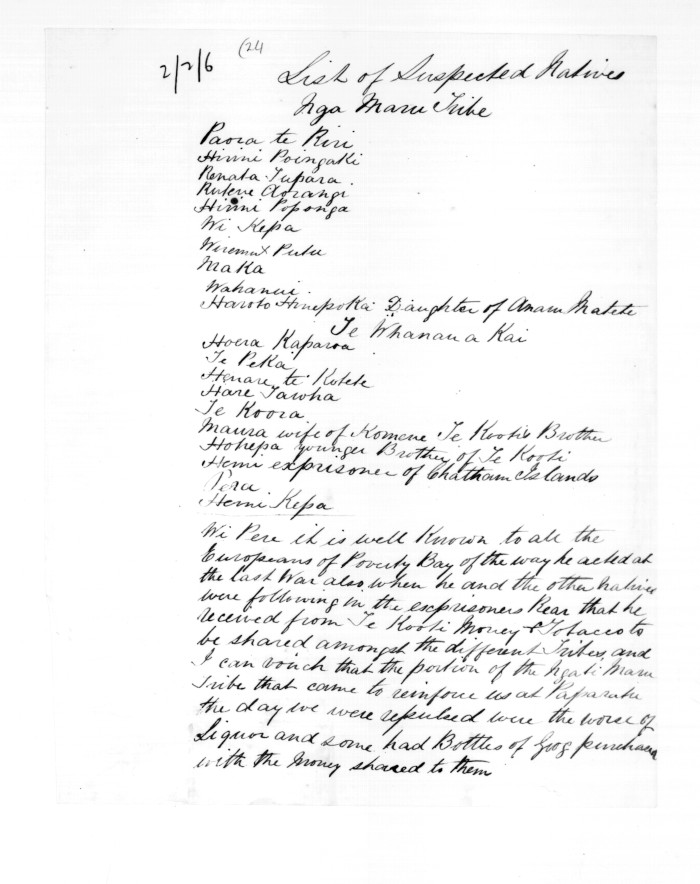 2/2/6
(24
List of Suspected Natives
Nga Maru Tribe
Paora te Riri
Hirini Poingaki
Renata Tupara
Rutene Aorangi
Hirini Poponga
Wi Kepa
Wiremu Putu
Maka
Wahanui
Haroto Hinepoka Daughter of Anaru Matete
Te Whanau a Kai
Hoera Kaparoa
Te Peka
Henare te Kotete
Hare Tawha
Te Koora
Maura wife of Komene Te Kootis Brother
Hohepa younger Brother of Te Kooti
Hemi exprisoner of Chatham Islands
Peru
Hemi Kepa
Wi Pere it is well Known to all the
Europeans of Poverty Bay of the way he acted at
the last War also when he and the other natives
were following in the exprisoners Rear that he
received from Te Kooti Money & Tobacco to
be shared amongst the different Tribes and
I can vouch that the portion of the Ngati Maru
Tribe that came to reinforce us at Paparatu
the day we were repulsed were the worse of
Liquor and some had Bottles of Grog purchased
with the Money shared to them